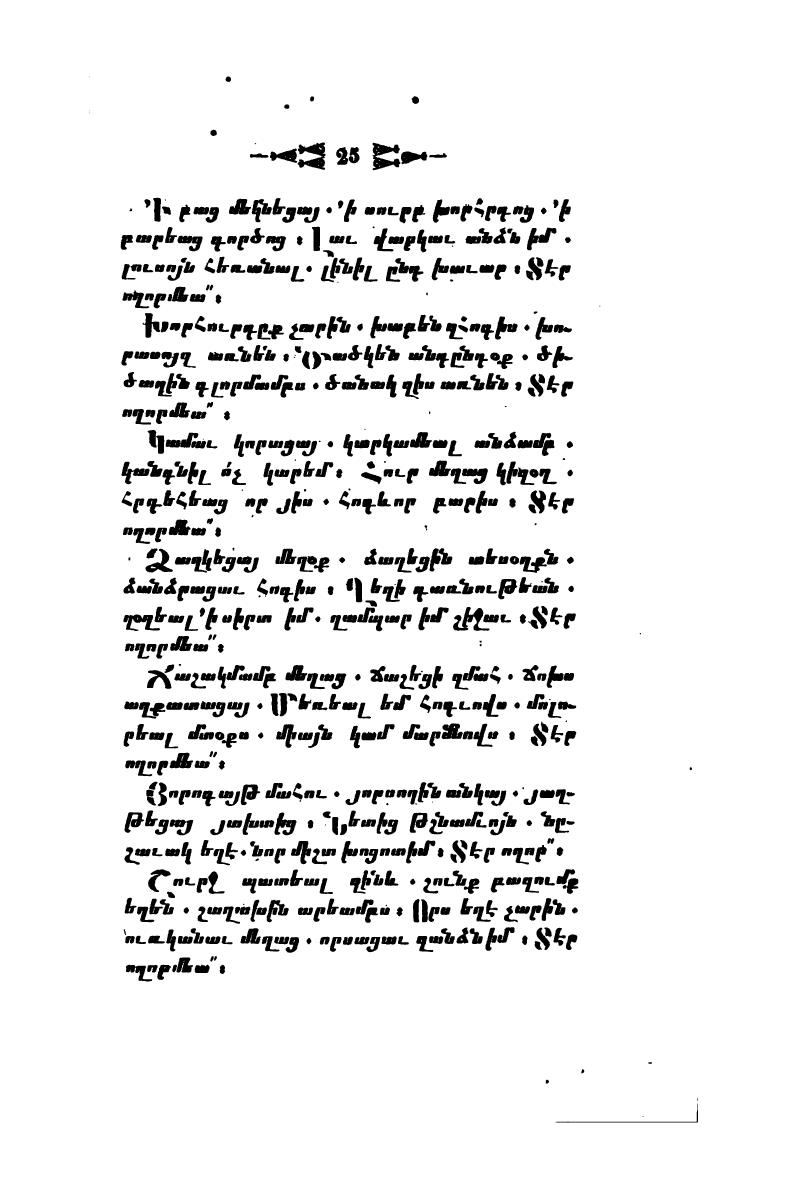 25
՚Ի բաց մեկնեցայ. ՚ի սուրբ խորհրդոց. ՚ի
բարեաց գործոց։ Լաւ վարկաւ անձն իմ.
լուսոյն հեռանալ. լինիլ ընդ խաւար։ Տէր
ողորմեա՛՛։
Խորհուրդըք չարին. խաբեն զհոգիս. խո֊
րասոյզ առնեն։ Ծածկեն անդընդօք. ծի֊
ծաղին գլորմամբս. ծանակ զիս առնեն։ Տէր
ողորմեա՛՛։
Կամաւ կորացայ. կարկամեալ անձամբ.
կանգնիլ ո՛չ կարեմ։ Հուր մեղաց կիզօղ.
հրդեհեաց որ յիս. հոգևոր բարիս։ Տէր
ողորմեա՛՛։
Ձաղկեցայ մեղօք. ձաղեցին տեսօղքն.
ձանձրացաւ հոգիս։ Ղեղի դառնութեան.
ղօղեալ ՚ի սիրտ իմ. ղամպար իմ շիջաւ։ Տէր
ողորմեա՛՛։
Ճաշակմամբ մեղաց. ճաշեցի զմահ. ճոխս
աղքատացայ. Մեռեալ եմ հոգւովս. մոլո֊
րեալ մտօքս. միայն կամ մարմնովս։ Տէր
ողորմեա՛՛։
Յորոգայթ մահու. յորսողին անկայ. յաղ֊
թեցայ յտխտից։ Նետից թշնամւոյն. նը֊
շաւակ եղէ. նոր միշտ խոցոտիմ։ Տէր ողոր՛՛։
Շուրջ պատեալ զինև. շունք բազումք
եղեն. շաղախին արեամբս։ Որս եղէ չարին.
՚ուռկանաւ մեղաց. որսացաւ զանձն իմ։ Տէր
ողորմեա՛՛։